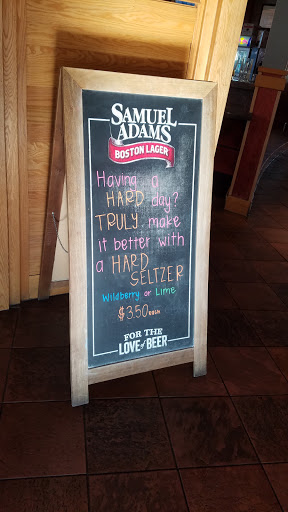 SAMUEL
ADAMS
BOSTON LAGER
Having a
HARD day?
TRULY make
it better with
a HARD
SELTZER
Wildberry or Lime
$3.50 each
FOR THE
LOVE of BEER